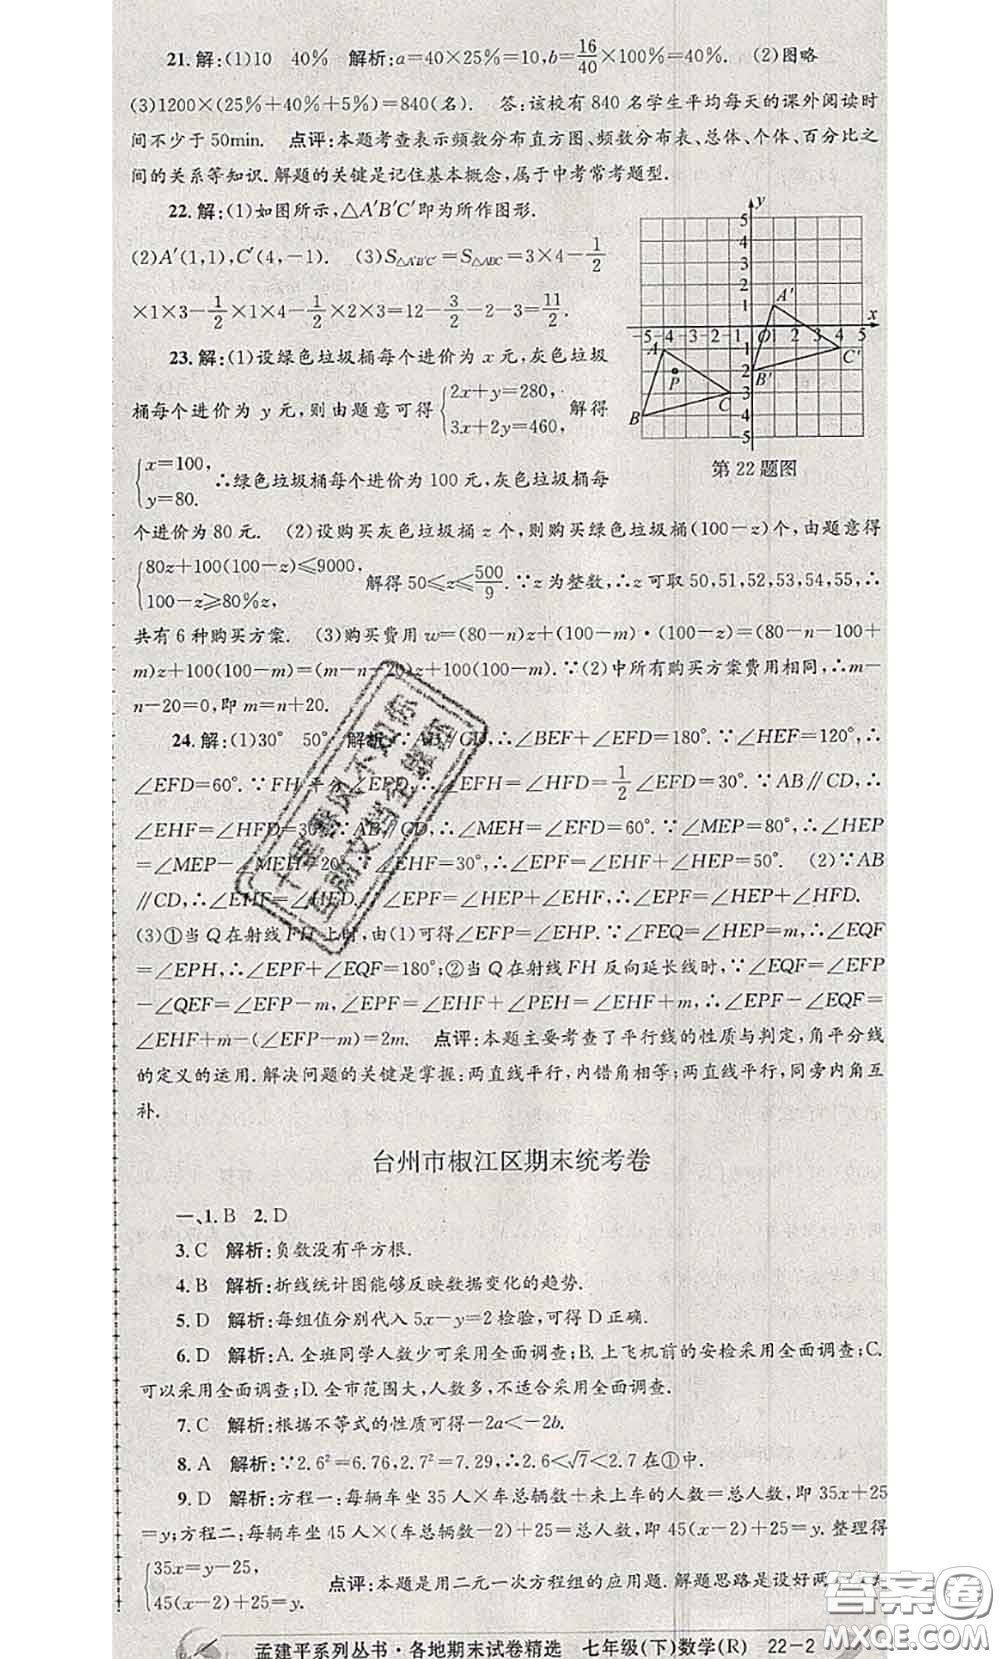 21. 解:(1)10　40%　解析:a=40×25%=10,b=16/40×100%=40%.　(2)图略
(3)1200×(25%+40%+5%)=840(名).　答:该校有 840 名学生平均每天的课外阅读时
间不少于 50min.　点评:本题考查表示频数分布直方图、频数分布表、总体、个体、百分比之
间的关系等知识.解题的关键是记住基本概念,属于中考常考题型.
22. 解:(1)如图所示,△A′B′C′即为所作图形.
(2)A′(1,1),C′(4,-1).　(3)S△A′B′C′=S△ABC=3×4-1/2
×1×3-1/2×1×4-1/2×2×3=12-3/2-2-3=11/2.
23. 解:(1)设绿色垃圾桶每个进价为 x 元,灰色垃圾
桶每个进价为 y 元,则由题意可得{2x+y=280, 3x+2y=460,解得
{x=100, y=80.∴绿色垃圾桶每个进价为 100 元,灰色垃圾桶每
y
5
4
3
2
1
x
-5-4-3-2-1 O 1 2 3 4 5
-1
-2
-3
-4
-5
A′
B′
C′
A
P
B
C
第 22 题图
个进价为 80 元.　(2)设购买灰色垃圾桶 z 个,则购买绿色垃圾桶(100-z)个,由题意得
{80z+100(100-z)≤9000, 100-z≥80%z,　解得 50≤z≤500/9.∵z 为整数,∴z 可取 50,51,52,53,54,55,∴
共有 6 种购买方案.　(3)购买费用 w=(80-n)z+(100-m)·(100-z)=(80-n-100+
m)z+100(100-m)=(m-n-20)z+100(100-m).∵(2)中所有购买方案费用相同,∴m-
n-20=0,即 m=n+20.
24. 解:(1)30°　50°　解析:∵AB∥CD,∴∠BEF+∠EFD=180°.∵∠HEF=120°,∴
∠EFD=60°.∵FH 平分∠EFD,∴∠EFH=∠HFD=1/2∠EFD=30°.∵AB∥CD,∴
∠EHF=∠HFD=30°.∵AB∥CD,∴∠MEH=∠EFD=60°.∵∠MEP=80°,∴∠HEP
=∠MEP-∠MEH=20°.∵∠EHF=30°,∴∠EPF=∠EHF+∠HEP=50°.　(2)∵AB
∥CD,∴∠EHF=∠HFD.∴∠EPF=∠HEP+∠EHF,∴∠EPF=∠HEP+∠HFD.
(3)①当 Q 在射线 FH 上时,由(1)可得∠EFP=∠EHP.∵∠FEQ=∠HEP=m,∴∠EQF
=∠EPH,∴∠EPF+∠EQF=180°;②当 Q 在射线 FH 反向延长线时,∵∠EQF=∠EFP
-∠QEF=∠EFP-m,∠EPF=∠EHF+∠PEH=∠EHF+m,∴∠EPF-∠EQF=
∠EHF+m-(∠EFP-m)=2m.　点评:本题主要考查了平行线的性质与判定,角平分线
的定义的运用.解决问题的关键是掌握:两直线平行,内错角相等;两直线平行,同旁内角互
补.
台州市椒江区期末统考卷
一、1. B　2. D
3. C　解析:负数没有平方根.
4. B　解析:折线统计图能够反映数据变化的趋势.
5. D　解析:每组值分别代入 5x-y=2 检验,可得 D 正确.
6. D　解析:A. 全班同学人数少可采用全面调查;B. 上飞机前的安检采用全面调查;C.
可以采用全面调查;D. 全市范围大,人数多,不适合采用全面调查.
7. C　解析:根据不等式的性质可得-2a<-2b.
8. A　解析:∵2.6²=6.76,2.7²=7.29,∴2.6<√7<2.7 在①中.
9. D　解析:方程一:每辆车坐 35 人×车总辆数+未上车的人数=总人数,即 35x+25
=y;方程二:每辆车坐 45 人×(车总辆数-2)+25=总人数,即 45(x-2)+25=y.整理得
{35x=y-25, 45(x-2)+25=y.　点评:本题是用二元一次方程组的应用题.解题思路是设好两
孟建平系列丛书·各地期末试卷精选　七年级(下)数学(R)　22-2
十里春风不如你
互助文档全靠你
答案圈
MXQE.COM